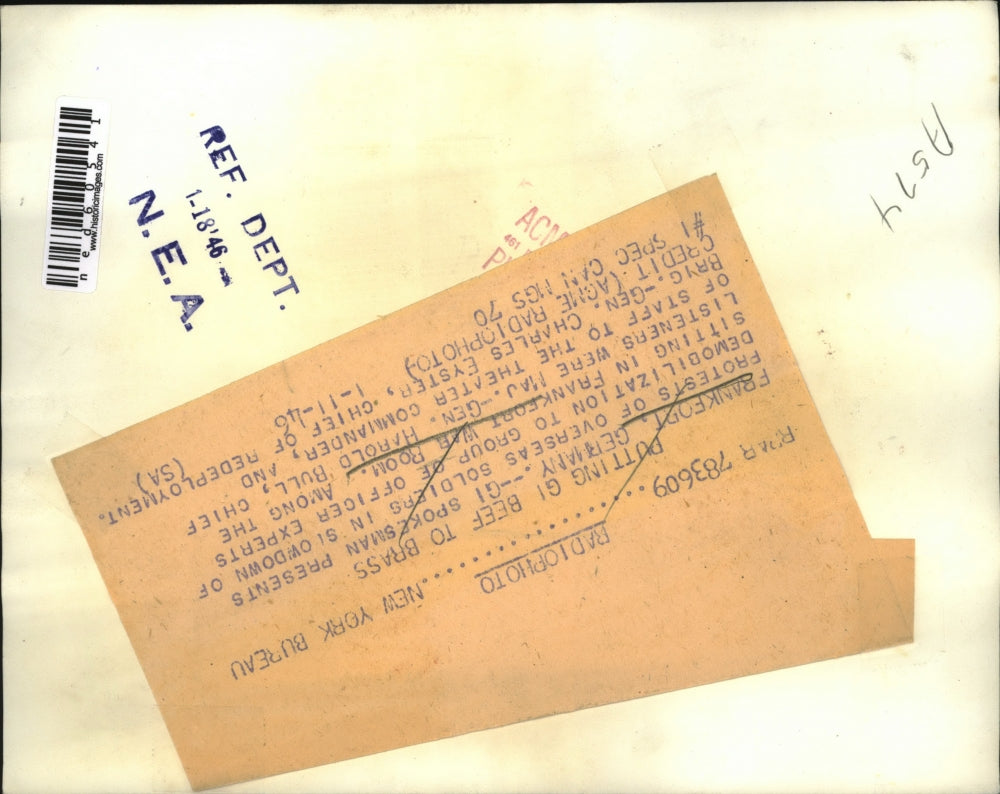 REF. DEPT.
1-18'46
N. E. A.
ned60541
www.historicimages.com
A574
ACM
461
RADIOPHOTO
RPAR 783609...............NEW YORK BUREAU
PUTTING GI BEEF TO BRASS
FRANKFORT, GERMANY.--GI SPOKESMAN PRESENTS
PROTESTS OF OVERSEAS SOLDIERS IN SLOWDOWN OF
DEMOBILIZATION TO GROUP OF OFFICER EXPERTS
SITTING IN FRANKFORT WAR ROOM. AMONG THE
LISTENERS WERE MAJ.-GEN. HAROLD BULL, CHIEF
OF STAFF TO THE THEATER COMMANDER, AND
BRYG.-GEN. CHARLES EYSTER, CHIEF OF REDEPLOYMENT.
CREDIT (ACME RADIOPHOTO) 1-11-46 (SA)
#1 SPEC CAN MGS 70